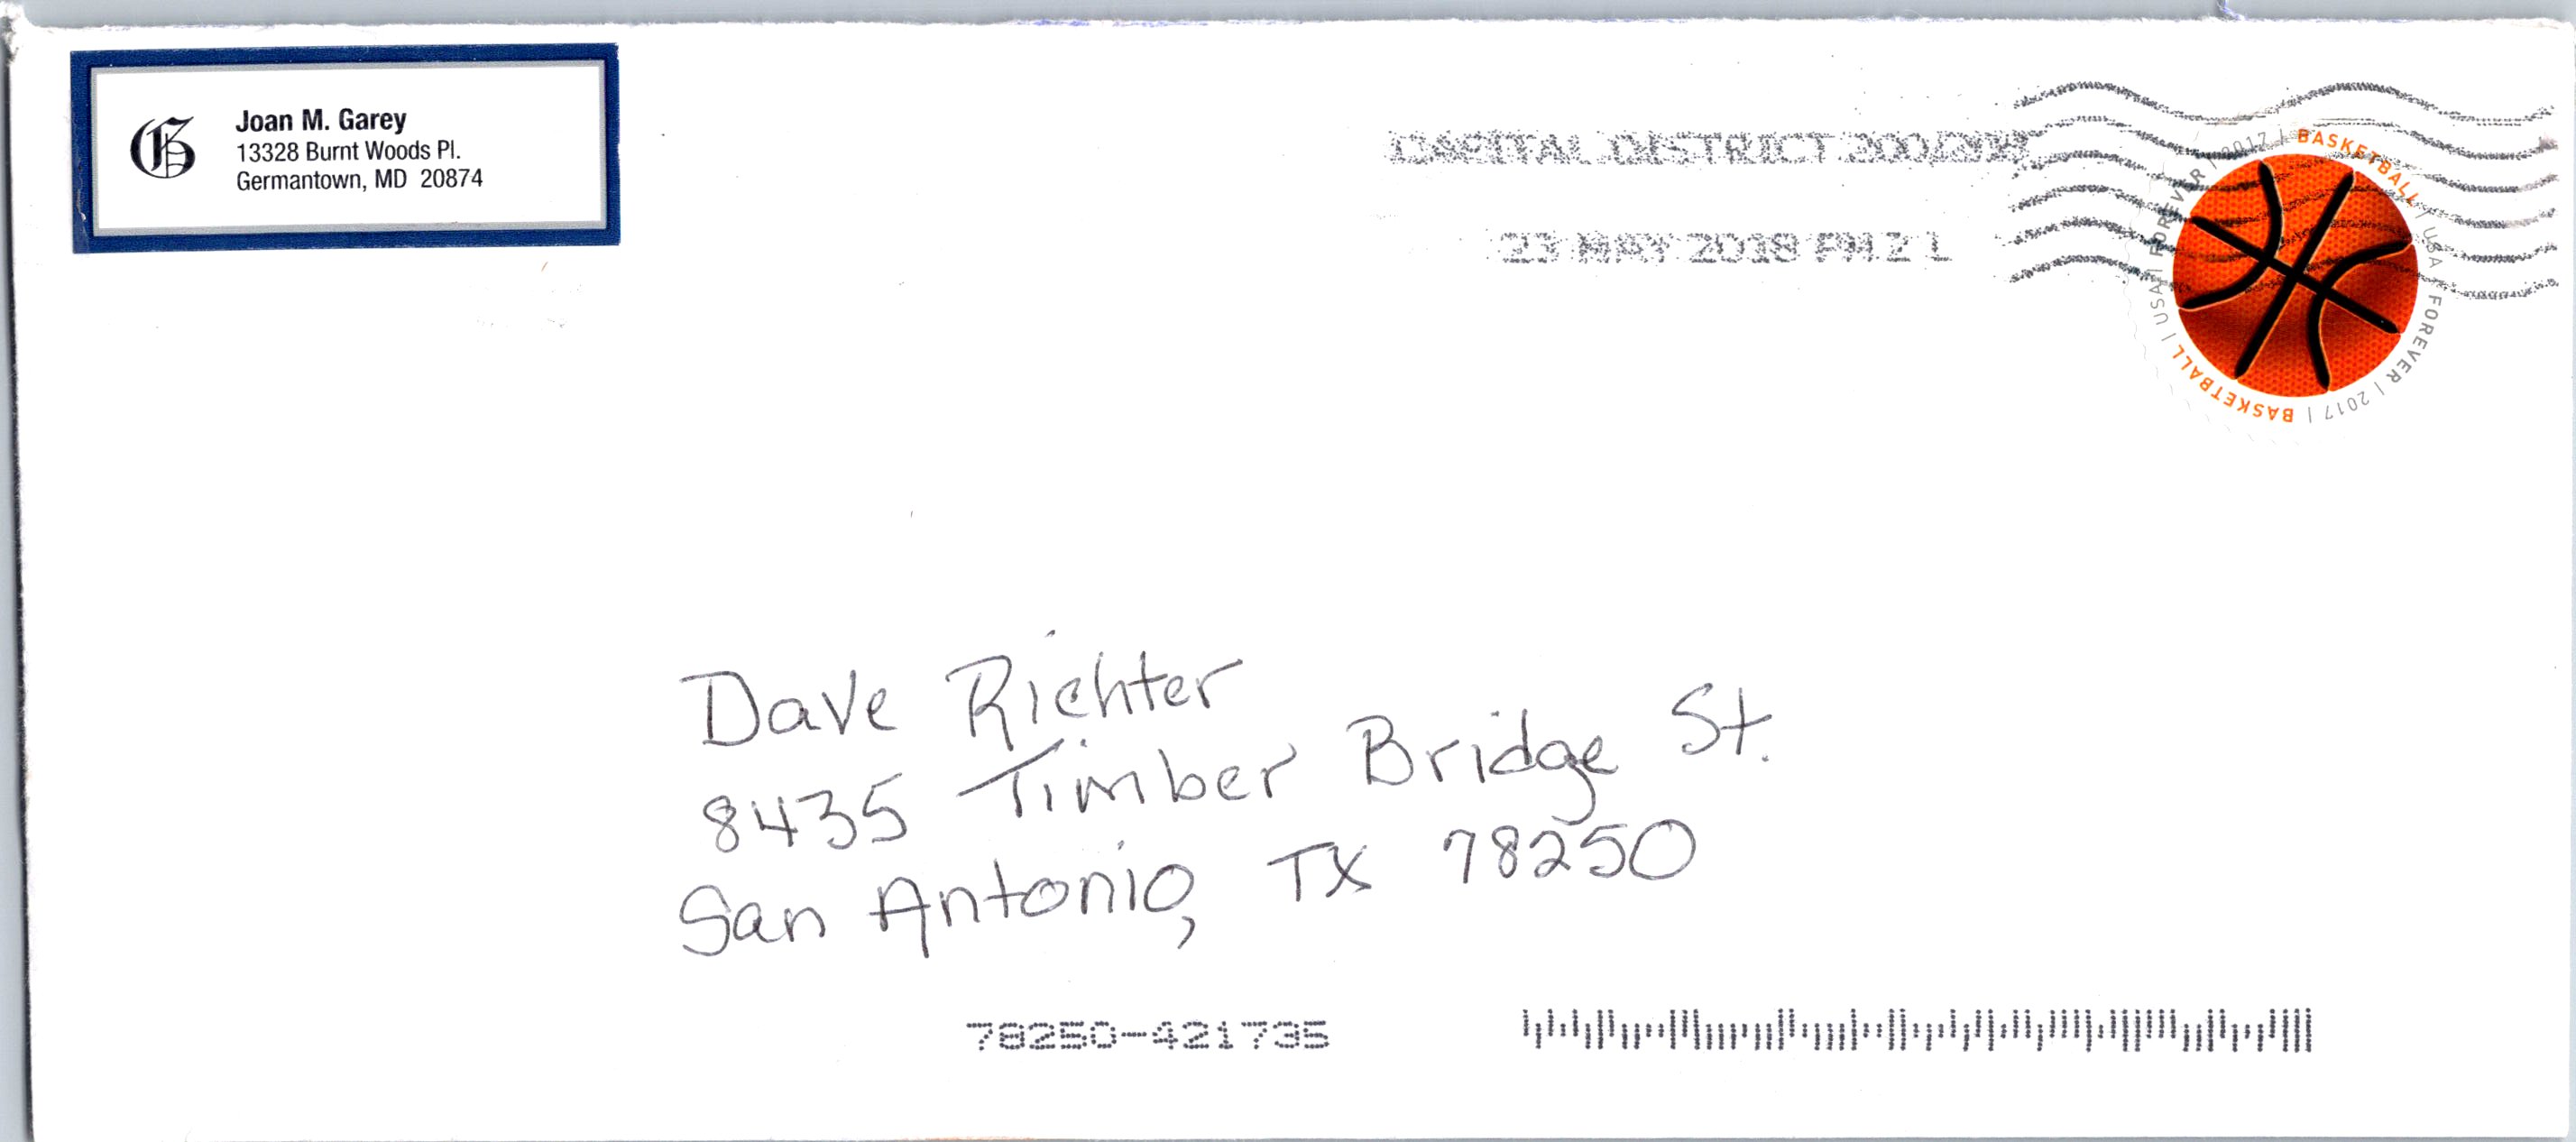 G
Joan M. Garey
13328 Burnt Woods Pl.
Germantown, MD 20874
CAPITAL DISTRICT
23 MAY 2018 PM 2 L
BASKETBALL | USA | FOREVER | 2017 | BASKETBALL | USA | FOREVER | 2017 |
Dave Richter
8435 Timber Bridge St.
San Antonio, TX 78250
78250-421735